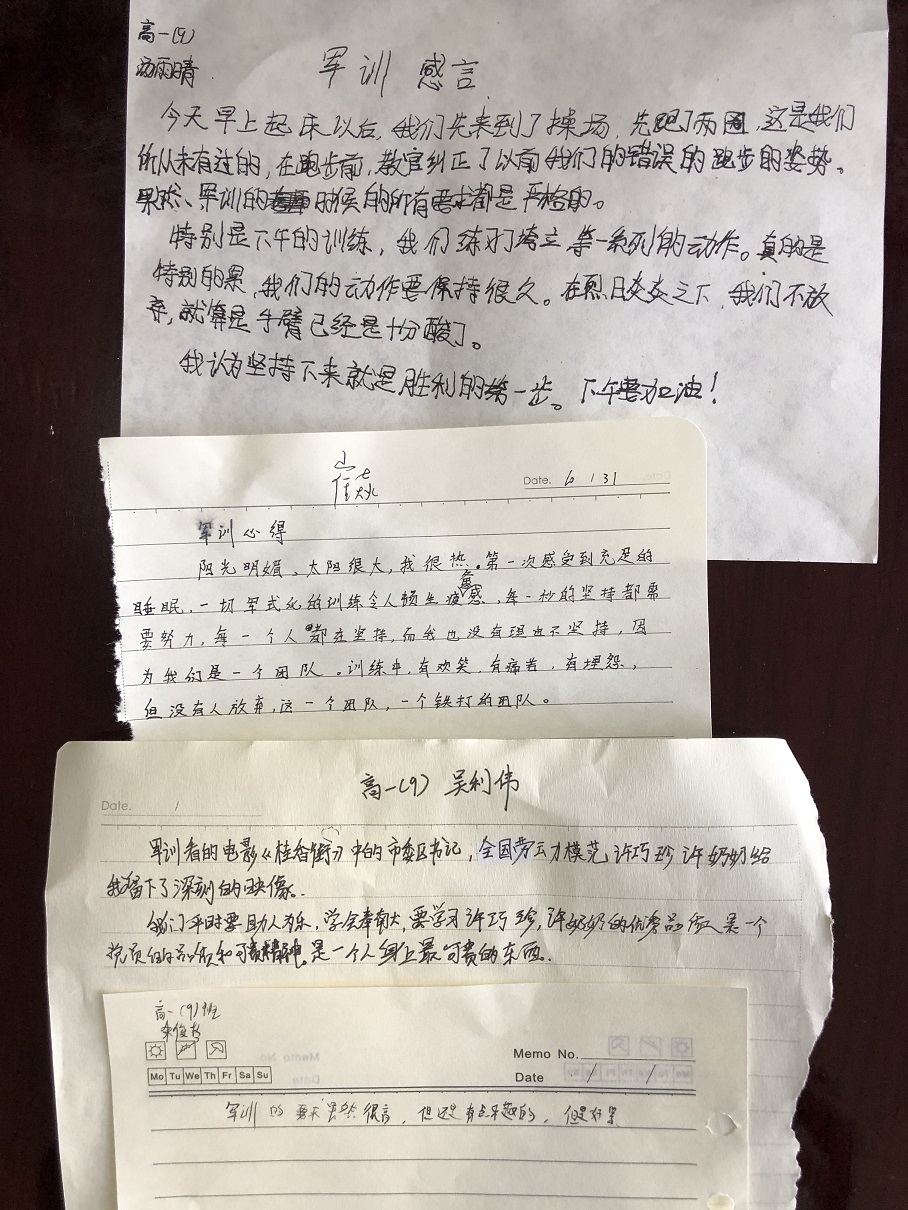 高一(9)
汤雨晴
军训 感言
今天早上起床以后,我们先来到了操场,先跑了两圈,这是我们
所从未有过的,在跑步前,教官纠正了以前我们的错误的跑步的姿势。
果然、军训的时候的所有要求都是严格的。
特别是下午的训练,我们练习了跨立等一系列的动作。真的是
特别的累,我们的动作要保持很久。在烈日炎炎之下,我们不放
弃,就算是手臂已经是十分酸了。
我认为坚持下来就是胜利的第一步。下午要加油!
崔焱
Date. 6 / 31
军训心得
阳光明媚、太阳很大,我很热。第一次感受到充足的
睡眠,一切军式化的训练令人顿生疲惫感,每一秒的坚持都需
要努力,每一个人都在坚持,而我也没有理由不坚持,因
为我们是一个团队。训练中,有欢笑,有痛苦,有埋怨,
但没有人放弃,这一个团队,一个铁打的团队。
高一(9) 吴利伟
Date. /
军训看的电影《桂香街》中的市委区书记,全国劳动力模范许巧珍许奶奶给
我留下了深刻的映像。
我们平时要助人为乐,学会奉献,要学习许巧珍,许奶奶的优秀品质,一个
党员的品质和可贵精神,是一个人身上最可贵的东西.
高一(9)班
Memo No.
Mo Tu We Th Fr Sa Su
Date / /
军训的要求虽然很高,但还是有点乐趣的,但是好累